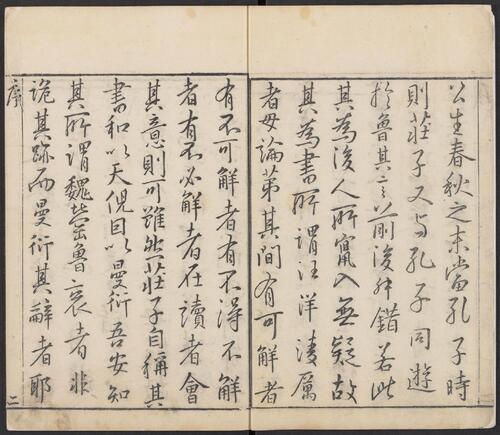 公生春秋之末當孔子時
則莊子又與孔子同遊
於魯其言前後舛錯若此
其為後人所竄入無疑故
其為書所謂汪洋淩厲
者毋論第其間有可解者
有不可解者有不得不解
者有不必解者在讀者會
其意則可雖然莊子自稱其
書和以天倪因以曼衍吾安知
其所謂魏瑩魯哀者非
詭其跡而曼衍其辭者耶
序
二